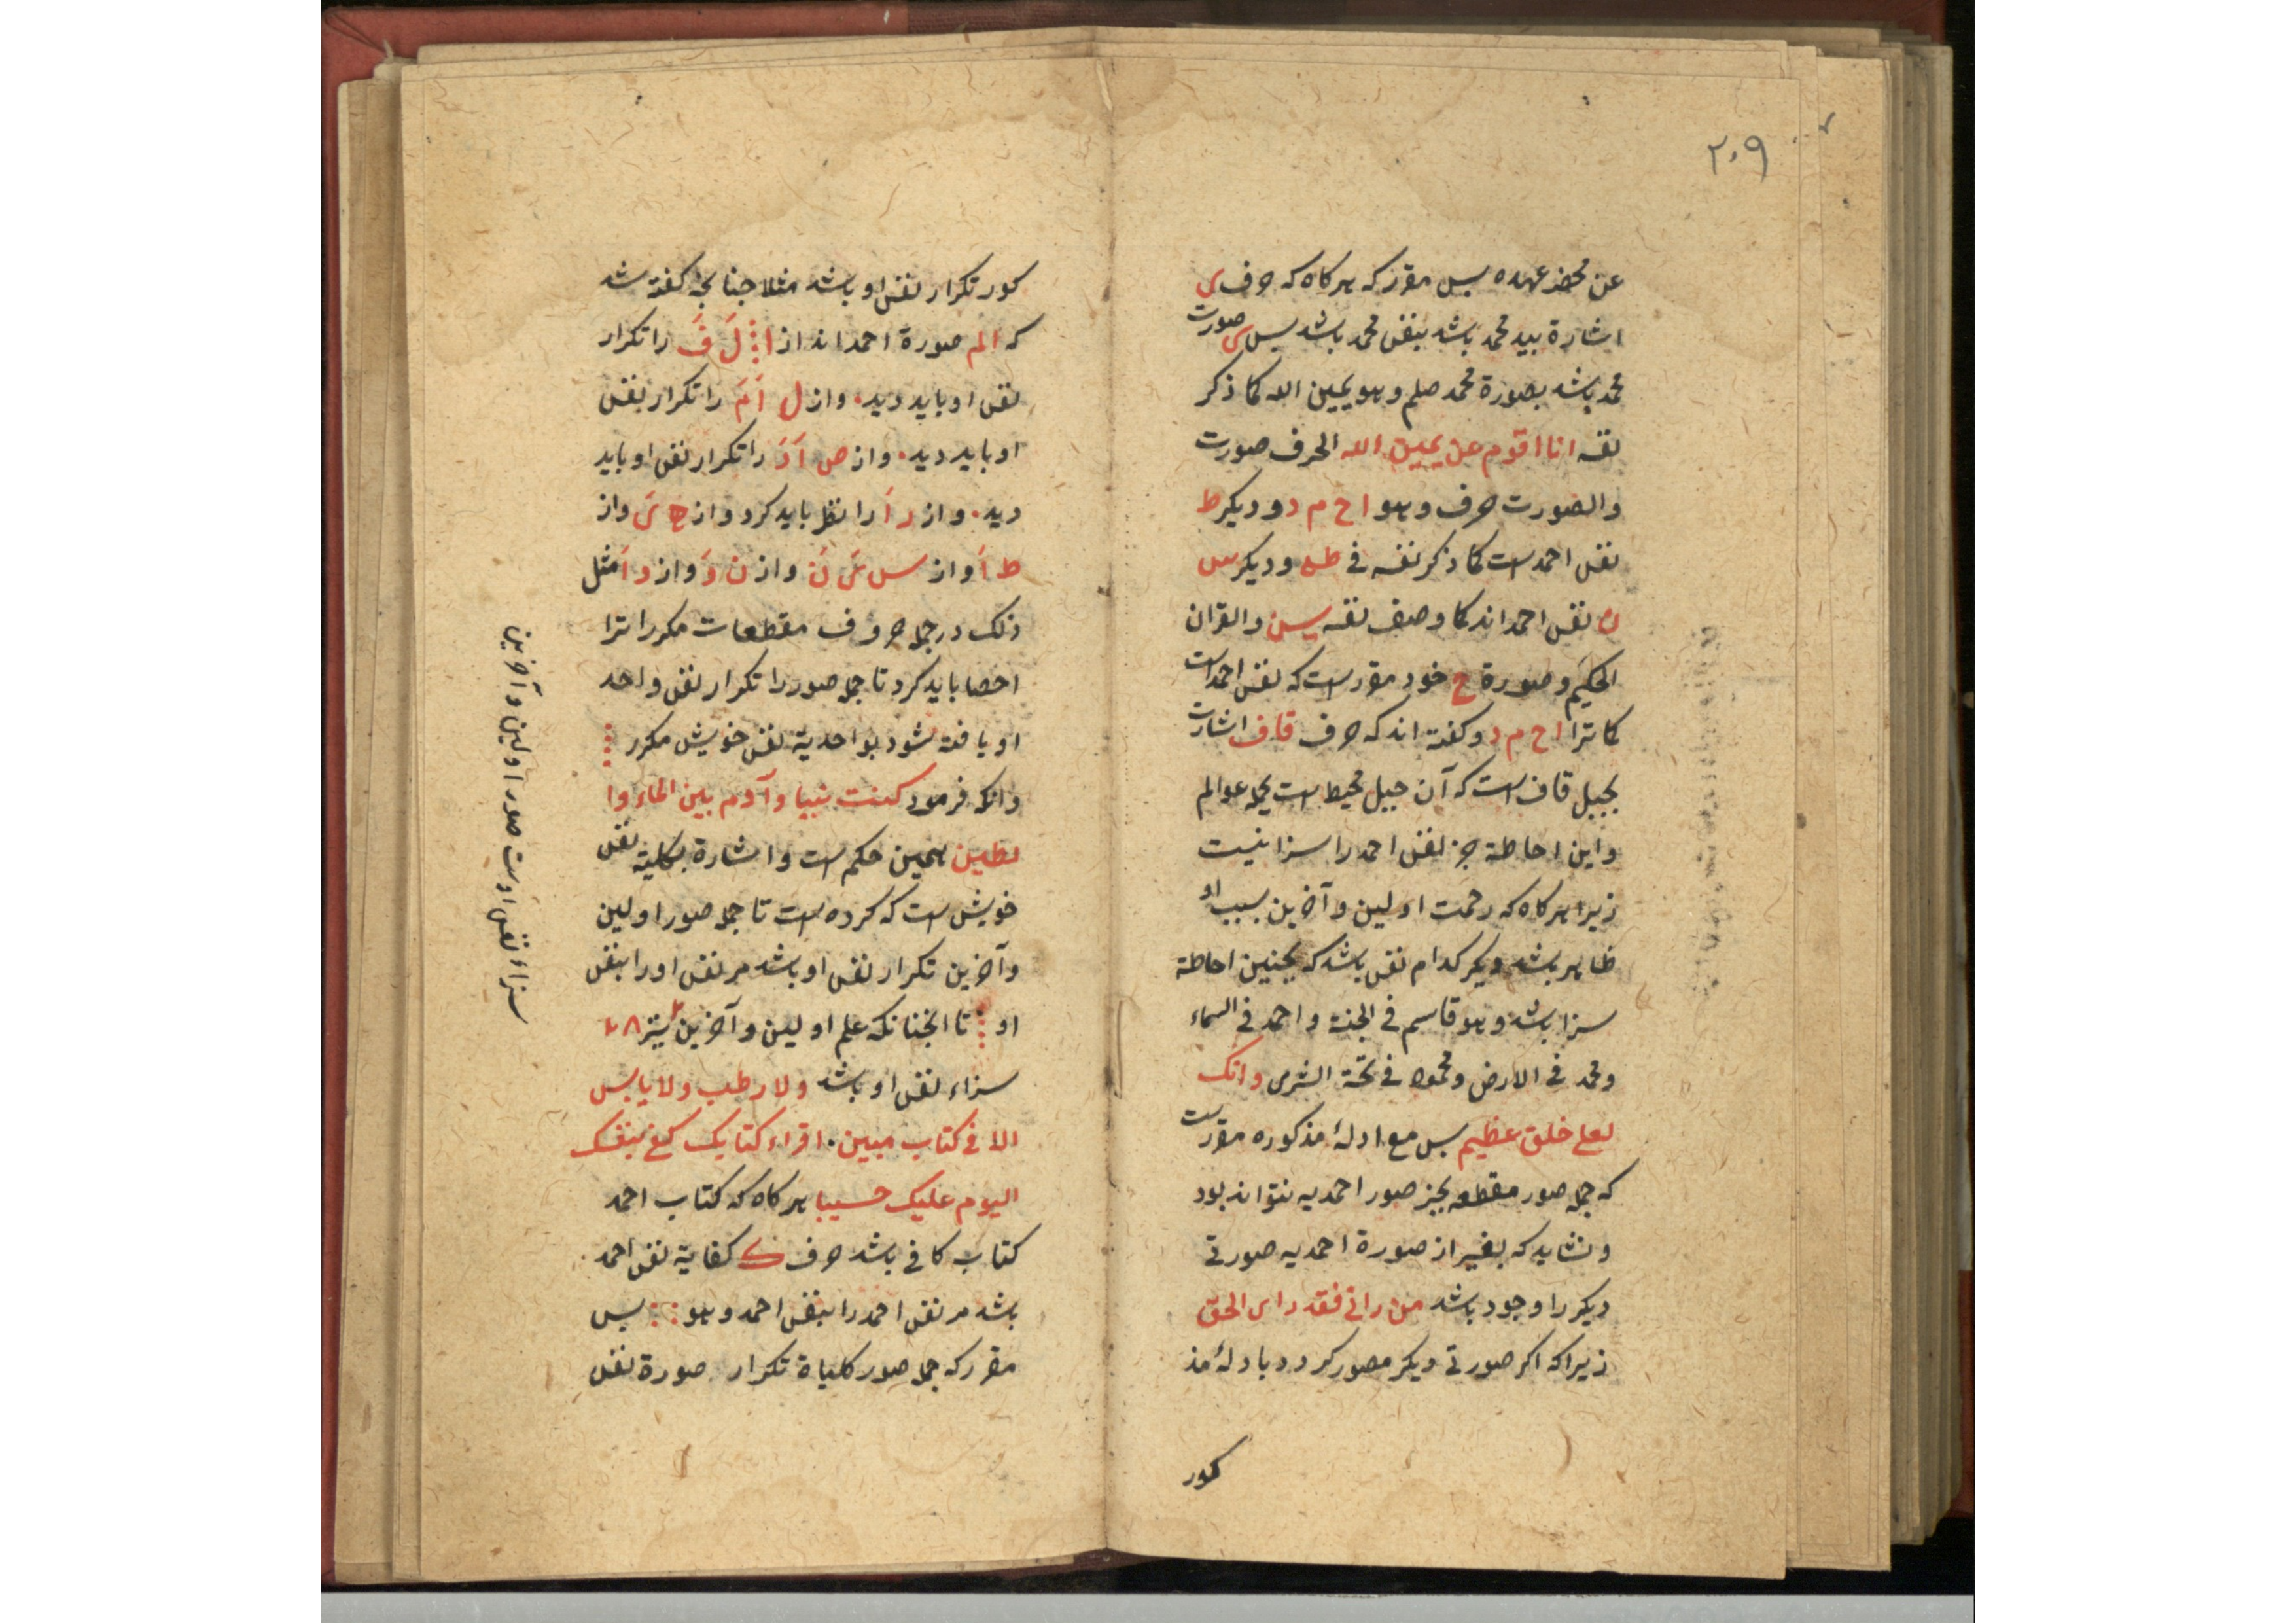 ۲۰۹
عن محضر عهده بس مقرر که هرکاه که حرف ی
اشارة بید محمد باشد بنفس محمد باشد بس ی صورت
محمد باشد بصورة محمد صلم وهو یمین الله کما ذکر
نفسه انا اقوم عن یمین الله الحرف صورت
والصورت حرف وهو ا ح م د و دیکر ط
نفس احمد است کما ذکر نفسه فی طه و دیکر س
ن نفس احمد اند کما وصف نفسه یسن والقران
الحکیم و صورة ح خود مقرر است که نفس احمد است
کما ترا ا ح م د و کفته اند که حرف قاف اشارت
بجبل قاف است که آن جبل محیط است بجمله عوالم
و این احاطة جز نفس احمد را سزا نیست
زیرا هرکاه که رحمت اولین و آخرین بسبب او
ظاهر باشد دیکر کدام نفس باشد که بجنین احاطة
سزا باشد وهو قاسم فی الجنة و احمد فی السماء
و محمد فی الارض و محمود فی تحتة الثری وانک
لعلی خلق عظیم بس مع ادلهٔ مذکوره مقررست
که جمله صور مقطعه بجز صور احمدیه نتواند بود
و نشاید که بغیر از صورة احمدیه صورتی
دیکر را وجود باشد من رانی فقد رای الحق
زیرا که اکر صورتی دیکر مصور کردد با دلهٔ مذ
کور
کور تکرار نفس او باشد مثلا جنانجه کفته شد
که الم صورة احمد اند از ا ل ف را تکرار
نفس او باید دید . و از ل ا م را تکرار نفس
او باید دید . و از ص ا د را تکرار نفس او باید
دید . و از ر ا را نظر باید کرد و از ح ی و از
ط ا و از س ی ن و از ن و و از د ا مثل
ذلک در جمله حروف مقطعات مکرر اترا
احصا باید کرد تا جمله صور را تکرار نفس واحد
او یافته شود بواحدیة نفس خویش مکرر
وانکه فرمود کنت نبیا وآدم بین الماء وا
لطین همین حکم است و اشارة بکلیة نفس
خویش است که کرده است تا جمله صور اولین
و آخرین تکرار نفس او باشد مر نفس اورا بنفس
او تا انجنانکه علم اولین و آخرین
سزاء نفس او باشد ولا رطب ولا یابس
الا فی کتاب مبین . اقراء کتابک کفی بنفسک
الیوم علیک حسیبا هرکاه که کتاب احمد
کتاب کافی باشد حرف ک کفایة نفس احمد
باشد مر نفس احمد را بنفس احمد وهو بس
مقرر که جمله صور کلیاة تکرار صورة نفس
سزاء نفس اوست صور اولین و آخرین